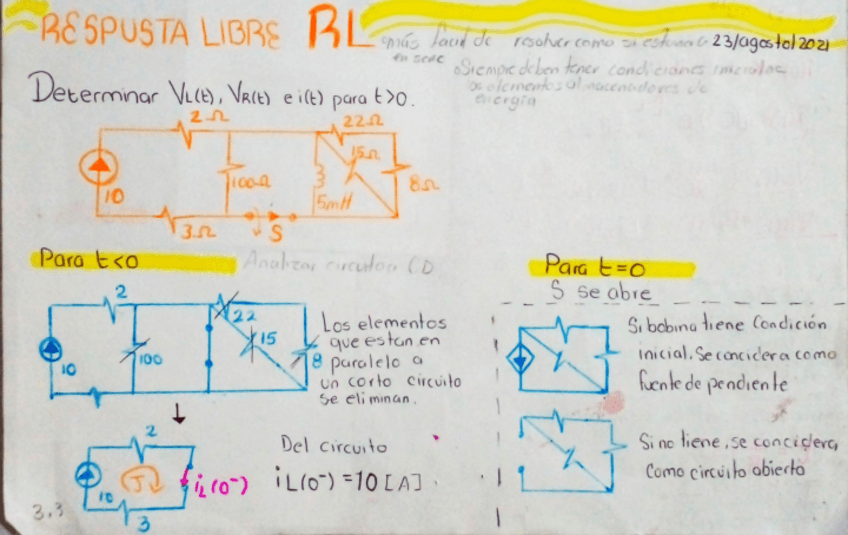 RESPUSTA LIBRE RL
más facil de resolver como si estuviera 23/agosto/2021
en serie
Siempre deben tener condiciones iniciales
los elementos almacenadores de
energía
Determinar VL(t), VR(t) e i(t) para t>0.
2Ω
22Ω
15Ω
100Ω
8Ω
10
5mH
3Ω
S
Para t<0
Analizar circuito CD
Para t=0
S se abre
2
22
15
100
8
10
Los elementos
que estan en
paralelo a
un corto circuito
se eliminan.
Si bobina tiene condición
inicial, se concidera como
fuente de pendiente
2
10
J
iL(0⁻)
3
Del circuito
iL(0⁻) = 10 [A]
Si no tiene, se concidera
como circuito abierto
3.3